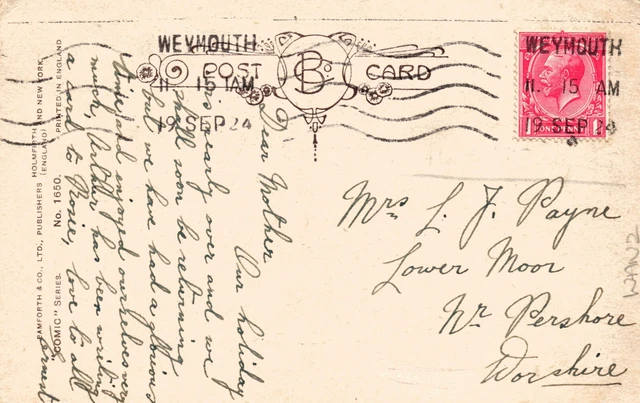 WEYMOUTH
11. 15 AM
19 SEP 24
POST CARD
B & Co
WEYMOUTH
11. 15 AM
19 SEP 24
ONE PENNY
BAMFORTH & CO., LTD., PUBLISHERS HOLMFIRTH (ENGLAND) AND NEW YORK
"COMIC" SERIES. No. 1650. PRINTED IN ENGLAND
Dear Mother
Our holiday
is nearly over and we
shall soon be returning
but we have had a glorious
time and enjoyed ourselves very
much, Arthur has been writing
a card to Rosie, love to all
Ernest
Mrs L. J. Payne
Lower Moor
Nr Pershore
Worshire